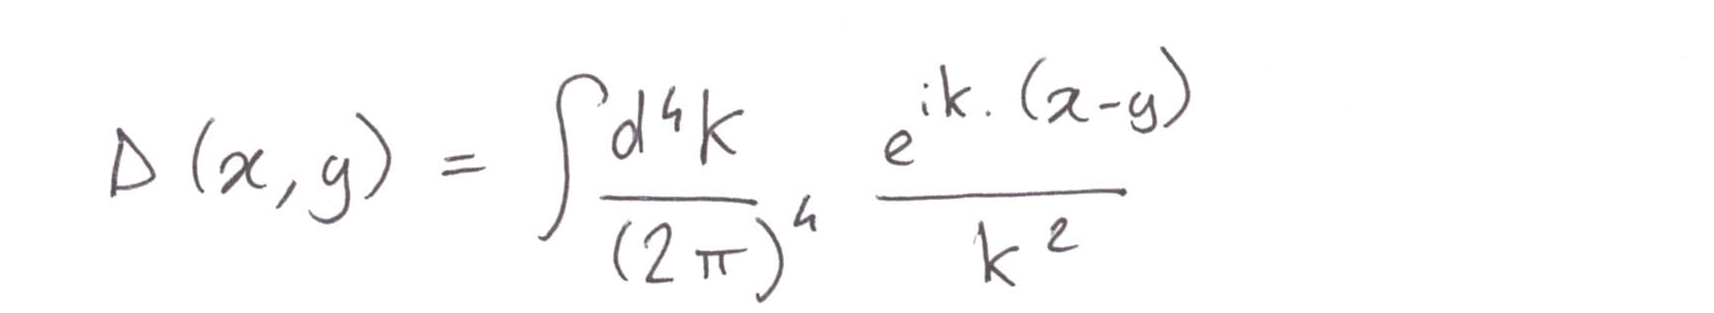 D(x,y) = ∫ d⁴k/(2π)⁴ e^{ik.(x-y)}/k²